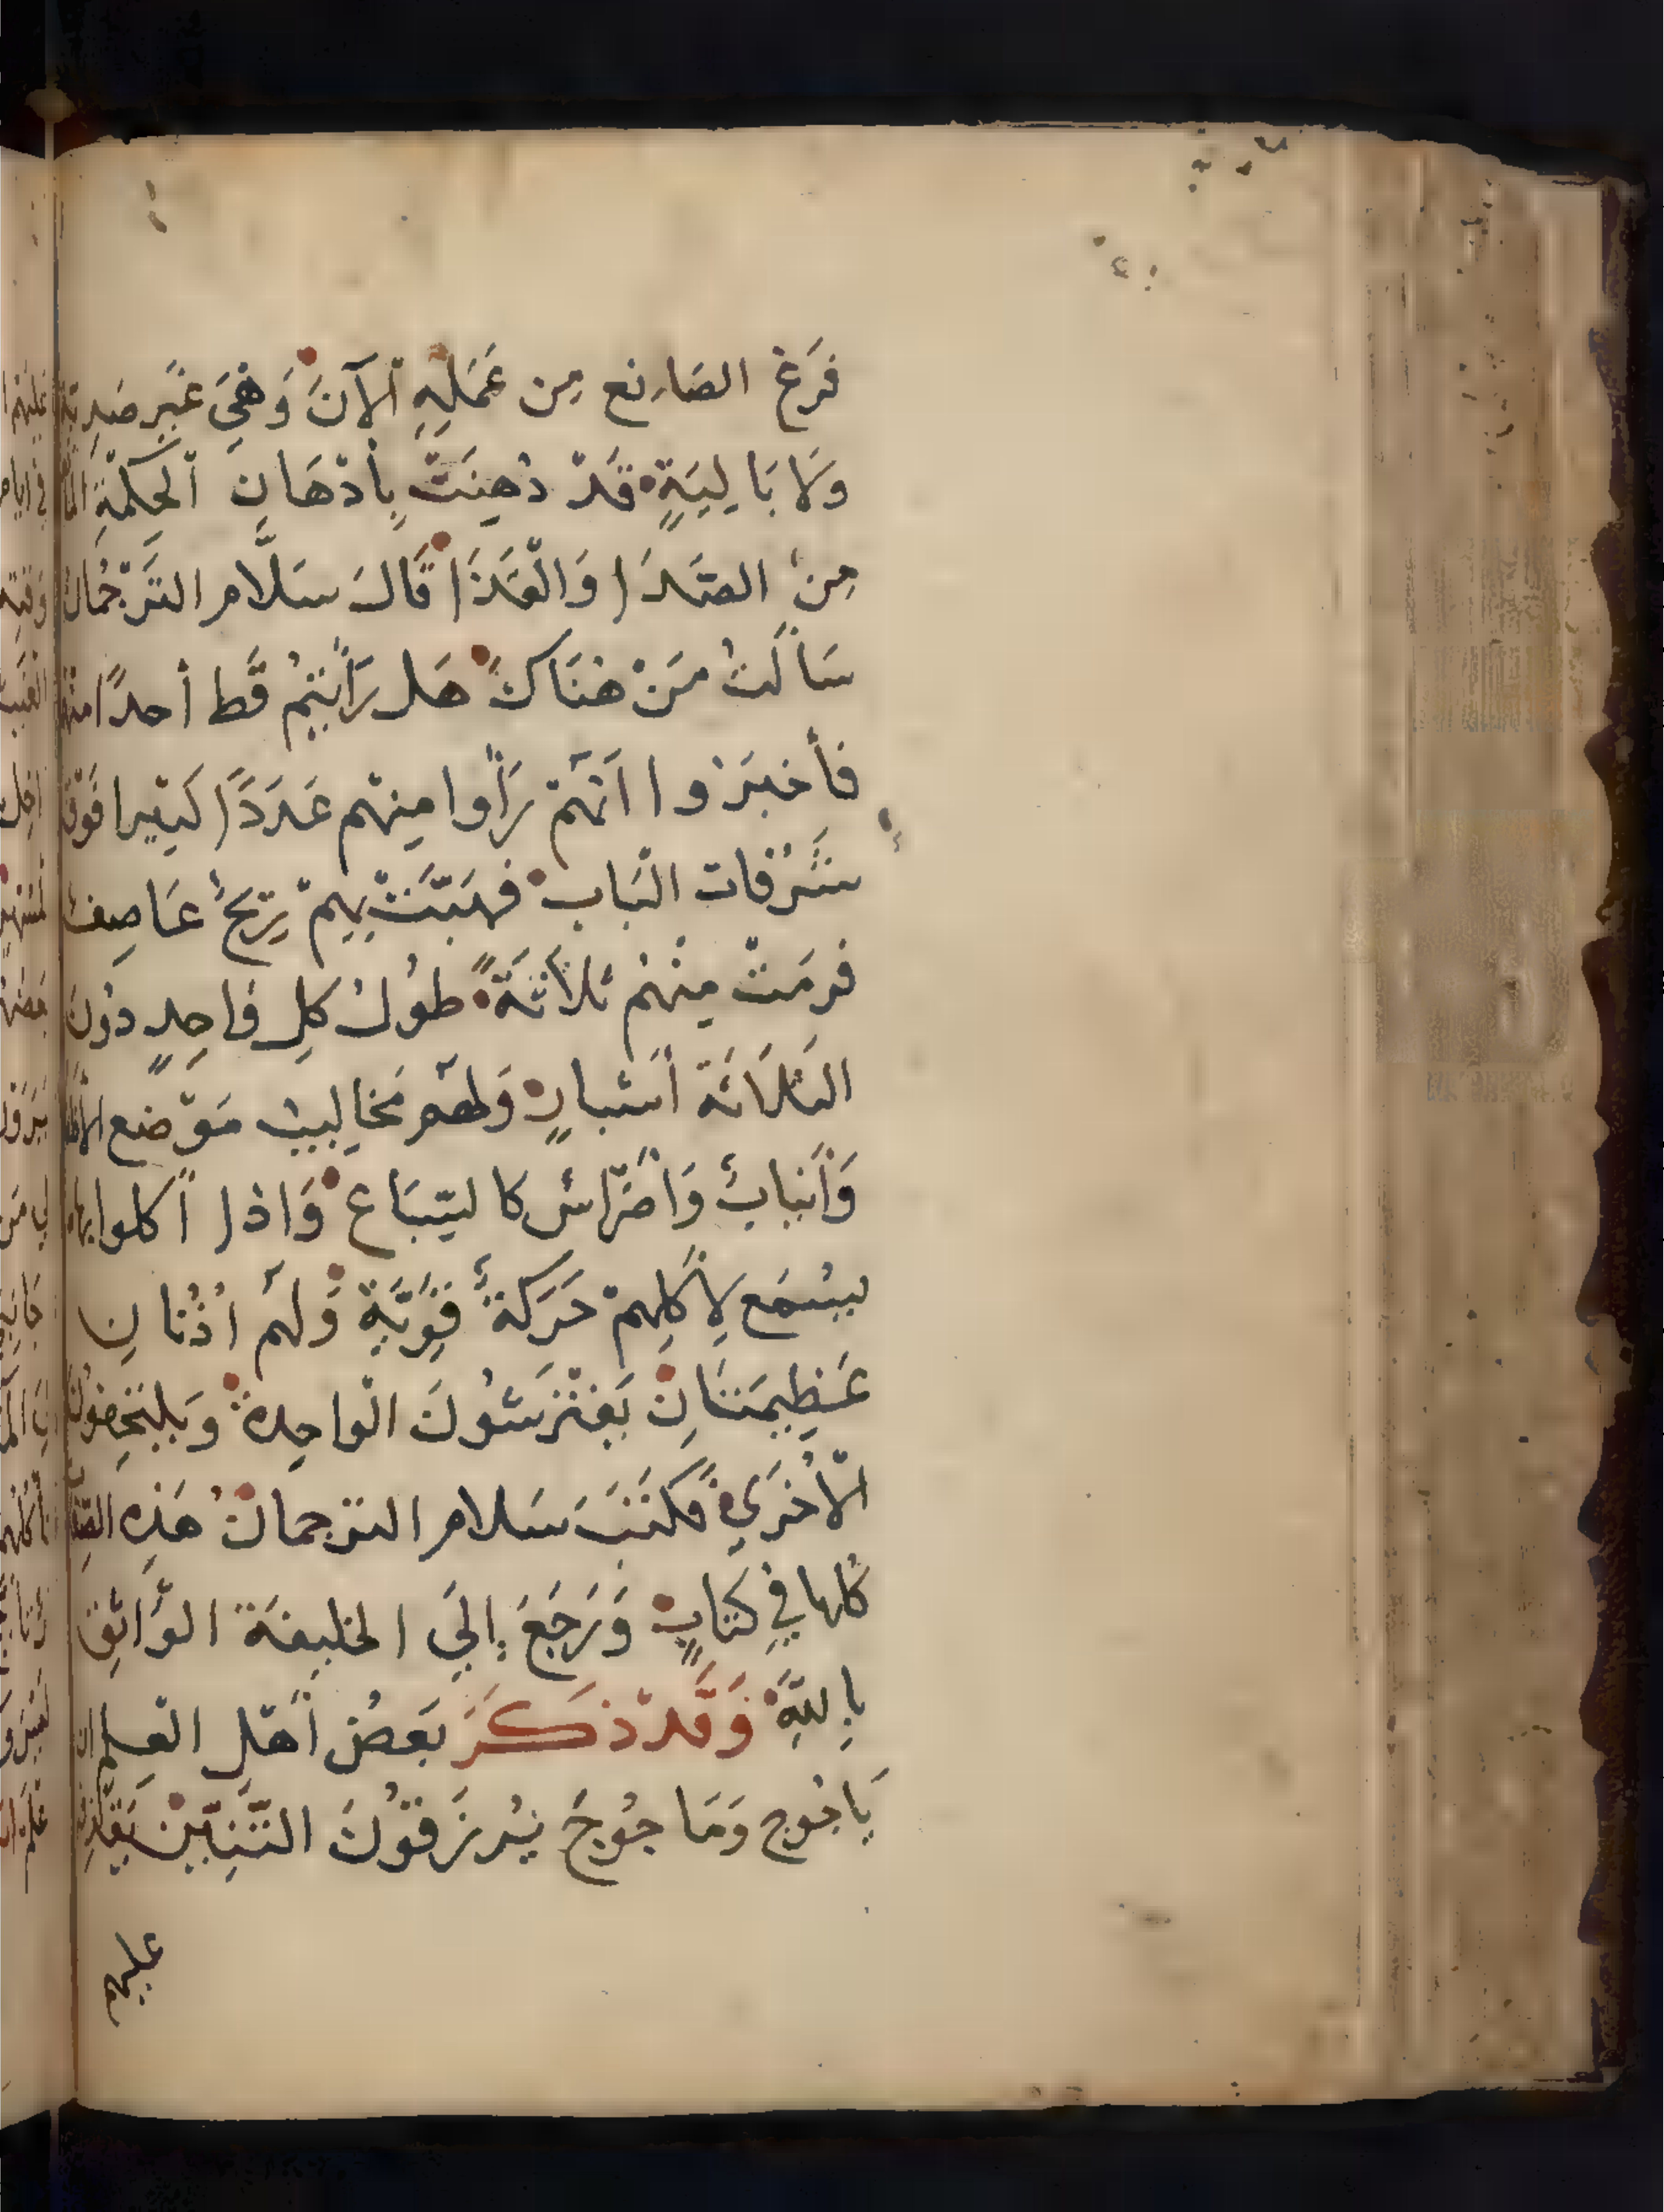 فَرَغ الصَانِع مِن عَمَلِهِ اْلآنَ وَهْيَ غَيرِ صَدِيَةٍ
وَلَا بَالِيَةٍ قَدْ دُهِنَتْ بِأَدْهَانِ الْحِكْمَةِ
مِنَ الصَدَا وَالْقَذَا قَالَ سَلَّام التَرْجُمَانْ
سَألتُ مَنْ هُنَاكَ هَل رَأيْتُمُ قَط أحدًا منهم
فأخبَرُوا اَنَّهُمْ رَأَوا مِنهم عَدَدًا كَثِيرا فَوْقَ
شُرُفات البَاب فهَبَّتْ بِهِمْ رِيْحٌ عَاصِف
فرمَتْ مِنْهُمْ ثلاَثَةً طُولُ كلِ وَاحِدٍ دُونَ
الثلَاثَة أَشبارٍ وَلهم مَخالِيبٌ مَوْضع الأظا
وَأَنيابٌ وَأَضْرَاسٌ كالسِّبَاع وَاذا أكلوا بها
يسُمَع لِأكلِهِمْ حَرَكةٌ قَوِيَّةٌ وَلهم اُذُنانِ
عَظِيمَتَانِ يَفتْرَشُونَ الْواحِدةَ وَيلتَحِفُونَ
الْأُخرَي فَكَتَبَ سَلام الترجمانُ هَذِه الصِفَا
كُلها فِي كتابٍ وَرَجَعَ إِلَي الخليفَة الوَاثِق
بِاللَّهِ وَقَدْ ذكَرَ بَعضُ أَهْلِ العِلم ان
يَاجُوج وَمَاجُوجَ يُرزَقُونَ التَّنِيِّنَ يَقْذِفُ
عليهم